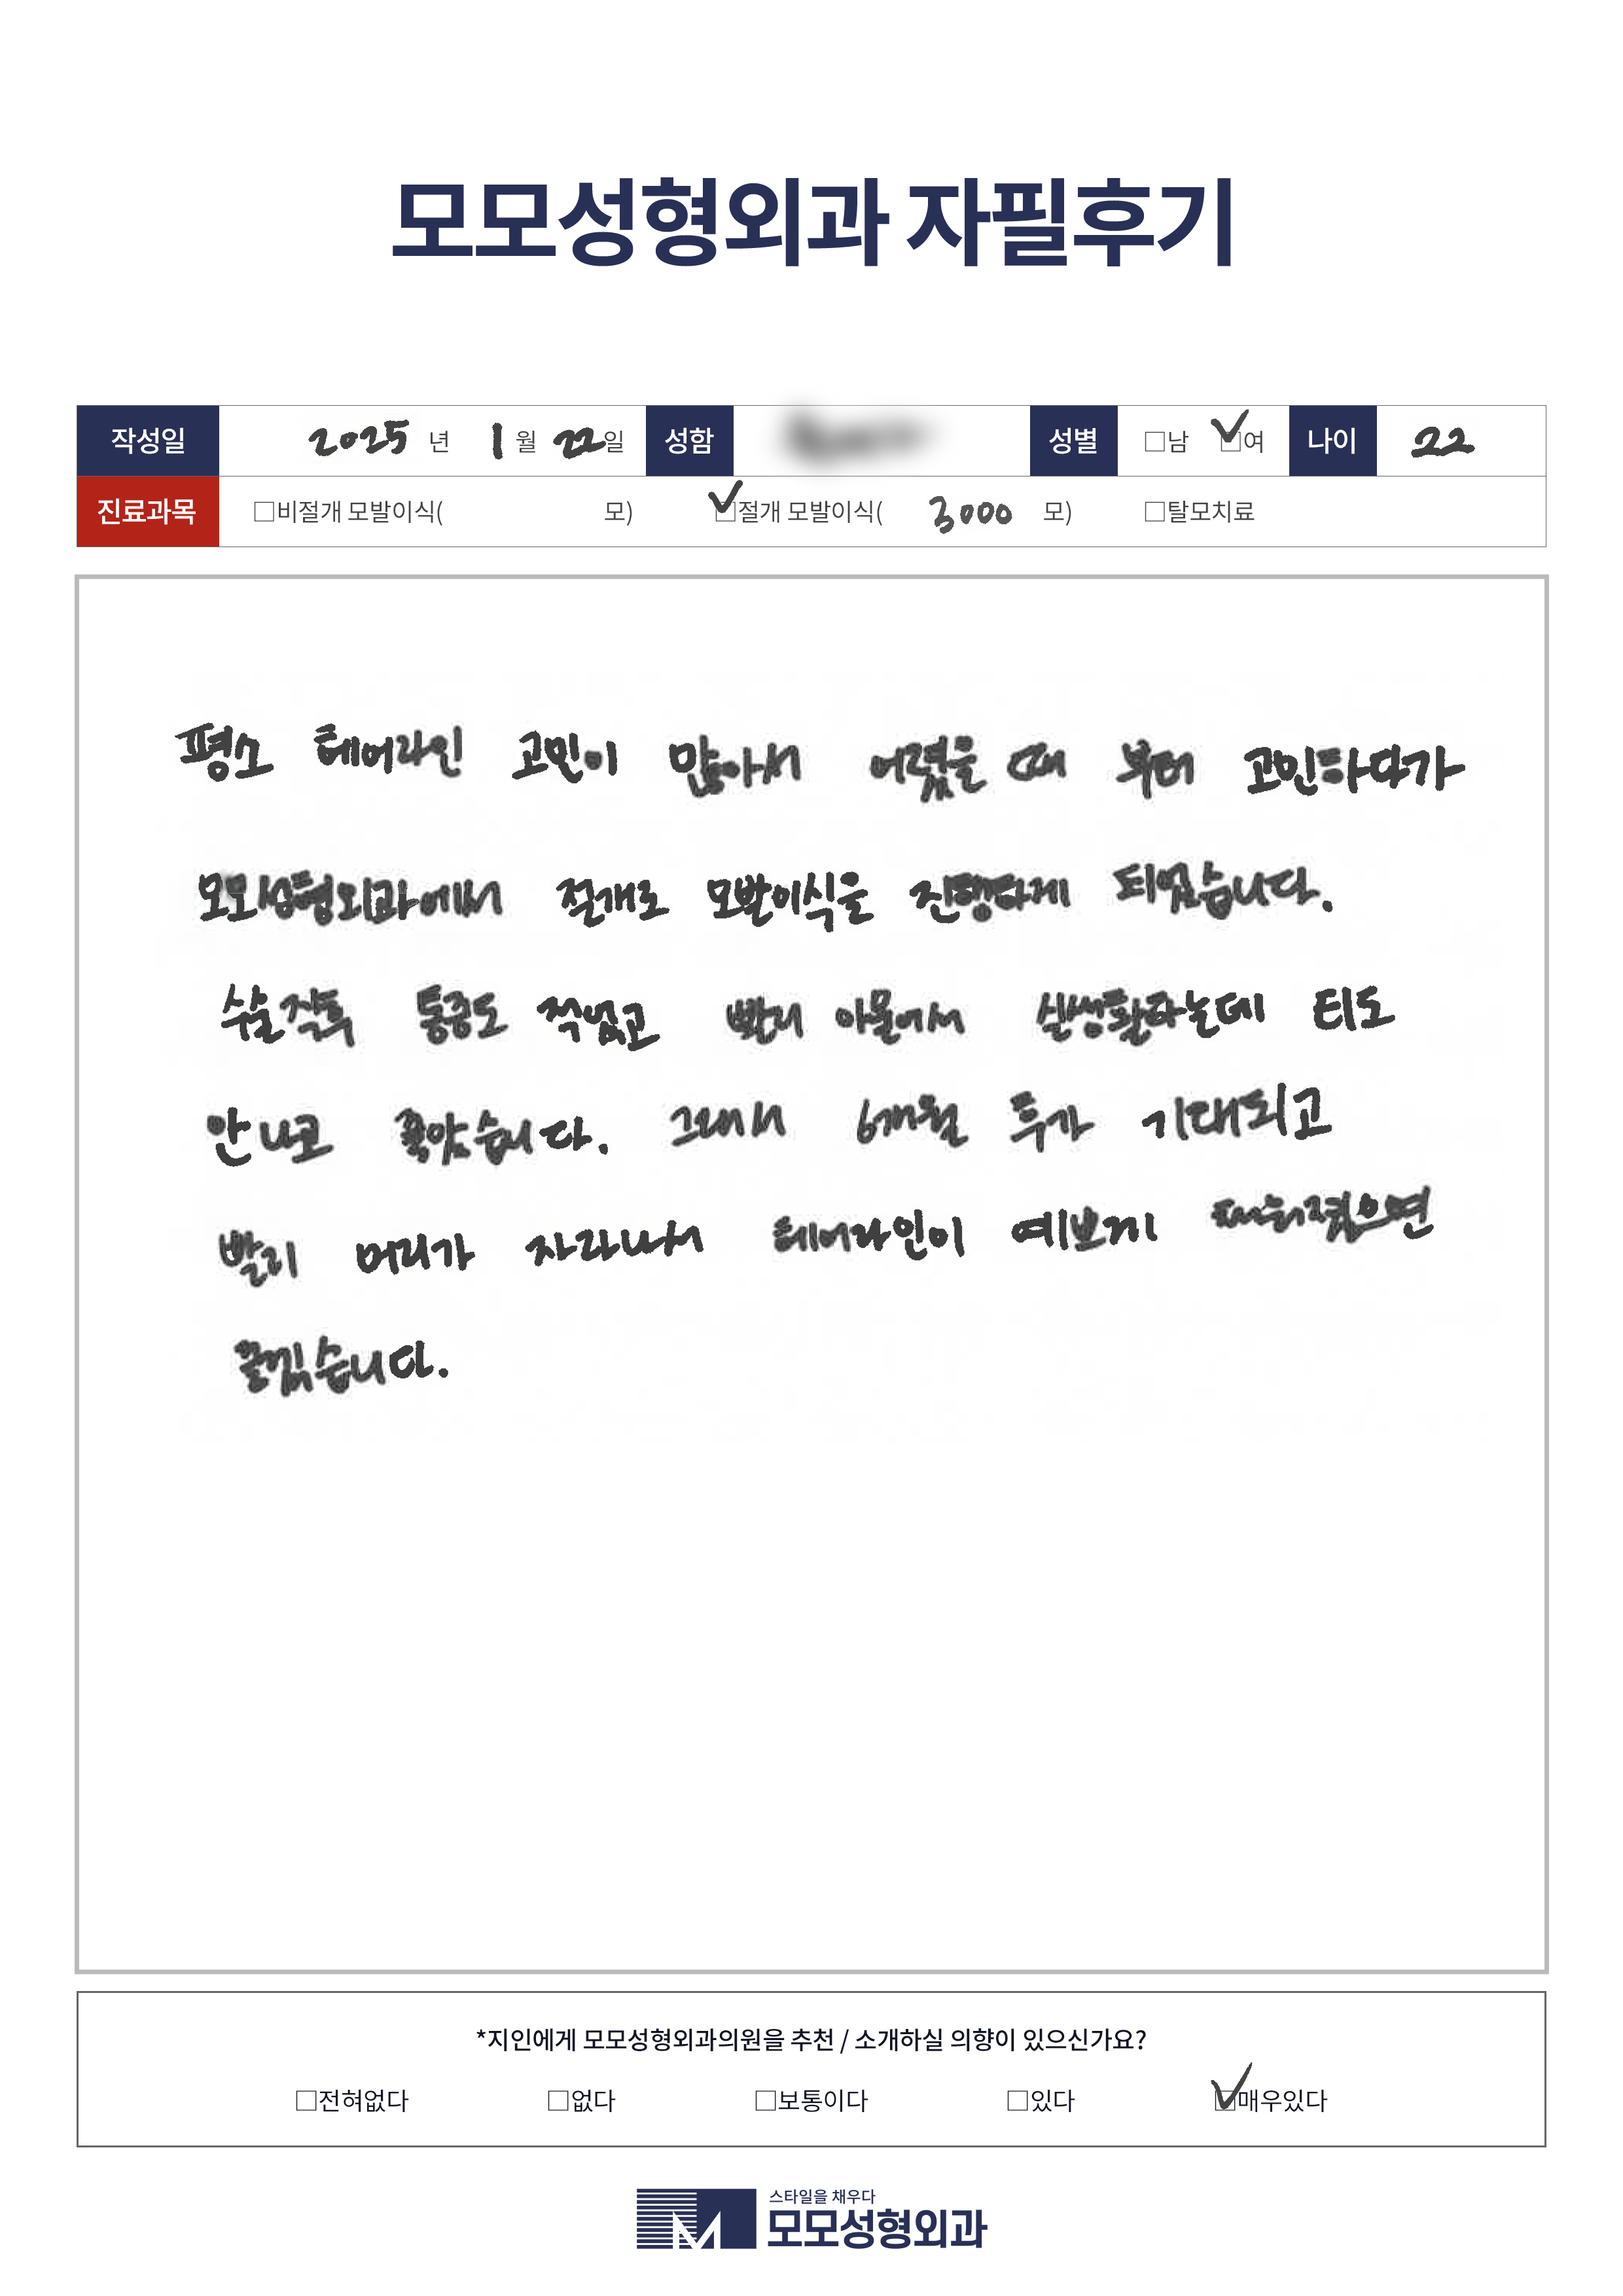 모모성형외과 자필후기
작성일 2025 년 1 월 22일 성함 성별 □남 ☑여 나이 22
진료과목 □비절개 모발이식( 모) ☑절개 모발이식( 3000 모) □탈모치료
평소 헤어라인 고민이 많아서 어렸을 때 부터 고민하다가
모모성형외과에서 절개로 모발이식을 진행하게 되었습니다.
수술직후 통증도 적었고 빨리 아물어서 일상생활하는데 티도
안나고 좋았습니다. 그래서 6개월 후가 기대되고
빨리 머리가 자라나서 헤어라인이 예쁘게 채워졌으면
좋겠습니다.
*지인에게 모모성형외과의원을 추천 / 소개하실 의향이 있으신가요?
□전혀없다 □없다 □보통이다 □있다 ☑매우있다
스타일을 채우다
모모성형외과